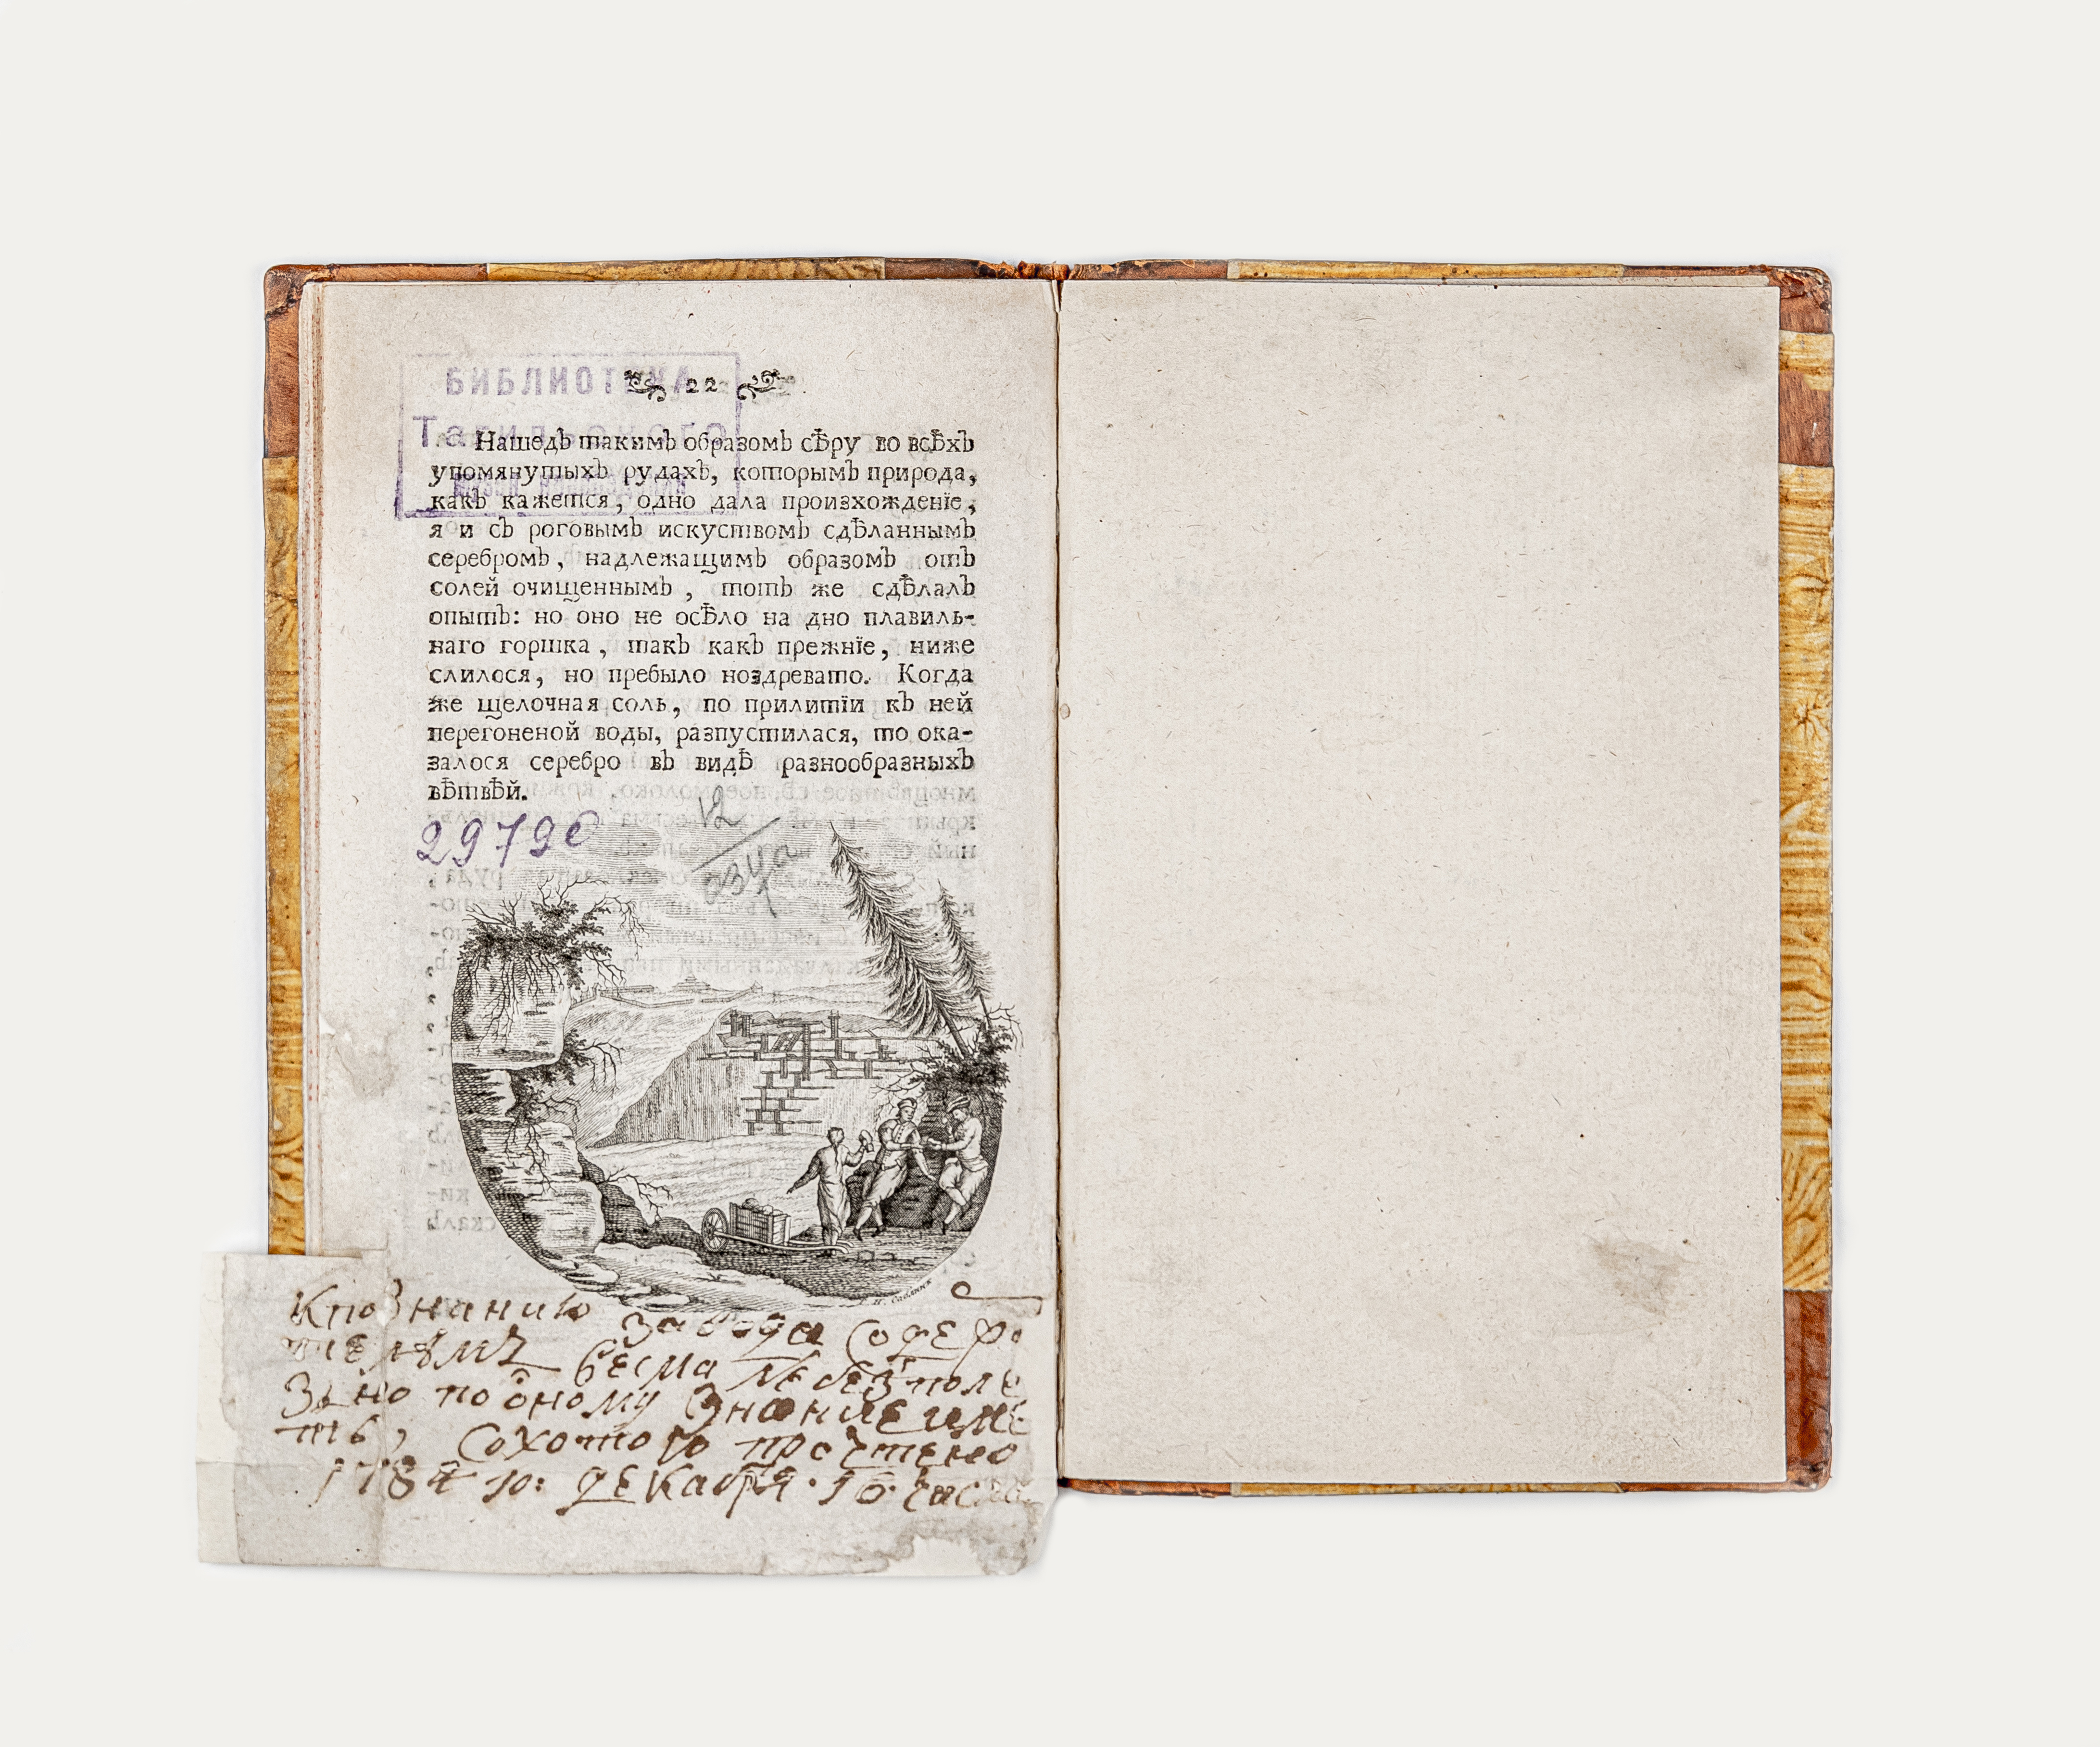 БИБЛИОТЕКА
22
Нашедъ такимъ образомъ сѣру во всѣхъ
упомянутыхъ рудахъ, которымъ природа,
какъ кажется, одно дала произхожденїе,
я и съ роговымъ искуствомъ сдѣланнымъ
серебромъ, надлежащимъ образомъ отъ
солей очищеннымъ, тотъ же сдѣлалъ
опытъ: но оно не осѣло на дно плавиль-
наго горшка, такъ какъ прежнїе, ниже
слилося, но пребыло ноздревато. Когда
же щелочная соль, по прилитїи къ ней
перегоненой воды, разпустилася, то ока-
залося серебро въ видѣ разнообразныхъ
вѣтвѣй.
12
Кпознанию завода содер
телямъ весма небезполе
зно пооному знание име
ть, Сохотою прочтено
1784 го: декабря 10 числа